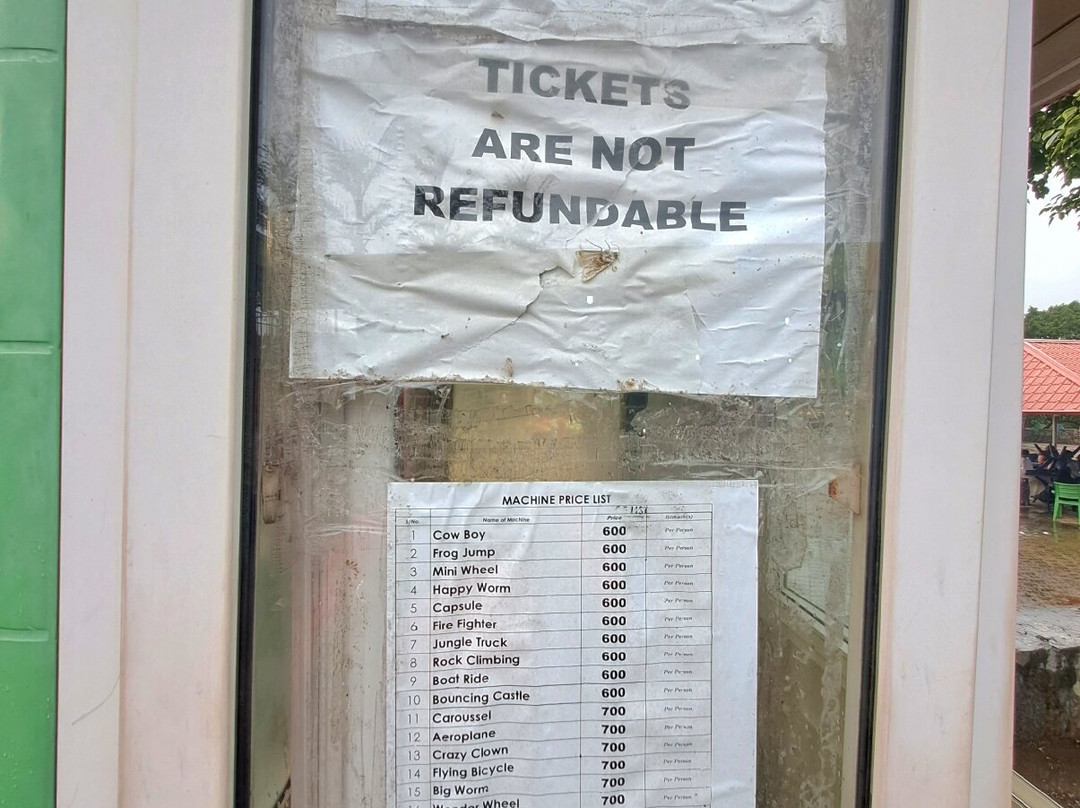 TICKETS
ARE NOT
REFUNDABLE
MACHINE PRICE LIST
S/No. Name of Machine Price Remark(s)
1 Cow Boy 600 Per Person
2 Frog Jump 600 Per Person
3 Mini Wheel 600 Per Person
4 Happy Worm 600 Per Person
5 Capsule 600 Per Person
6 Fire Fighter 600 Per Person
7 Jungle Truck 600 Per Person
8 Rock Climbing 600 Per Person
9 Boat Ride 600 Per Person
10 Bouncing Castle 600 Per Person
11 Caroussel 700 Per Person
12 Aeroplane 700 Per Person
13 Crazy Clown 700 Per Person
14 Flying Bicycle 700 Per Person
15 Big Worm 700 Per Person
Wonder Wheel 700 Per Person